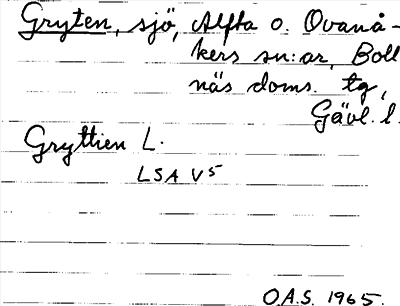 Gryten, sjö, Alfta o. Ovanå-
kers sn:ar, Boll
näs doms. tg,
Gävl. l.
Gryttien L.
LSA V5
O.A.S. 1965.